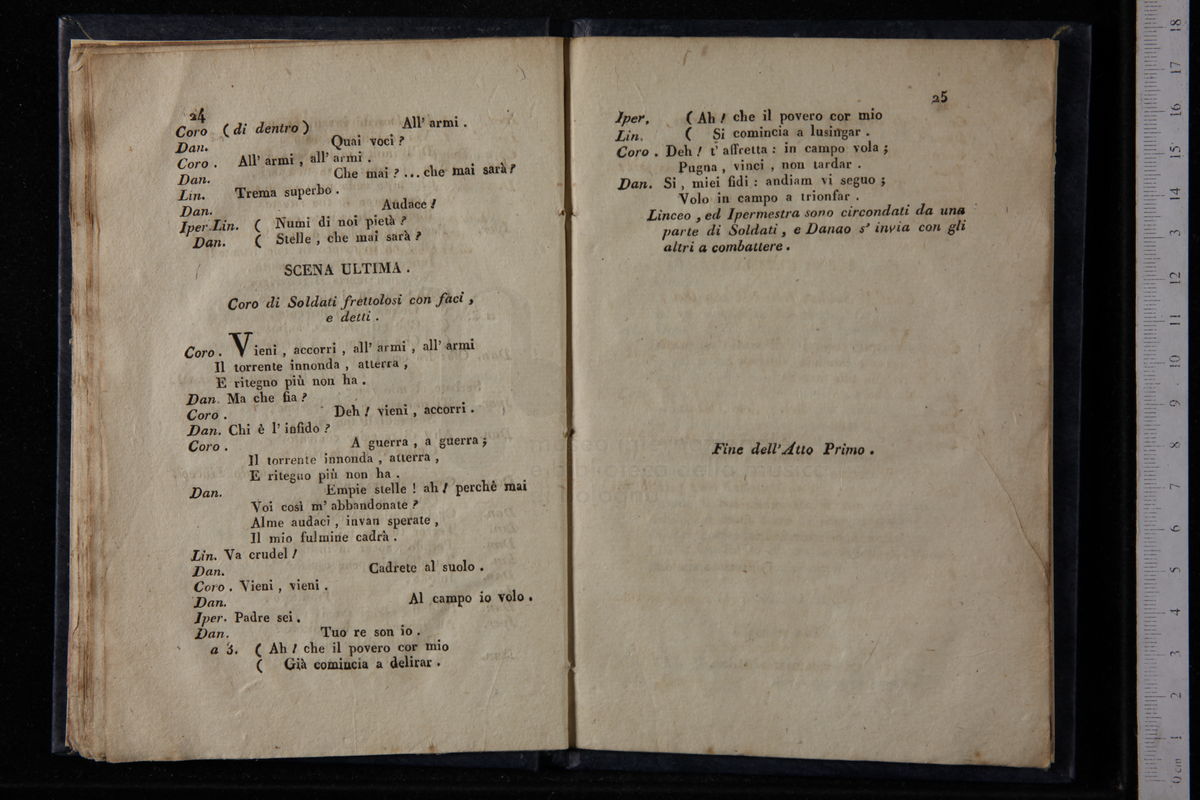 24
Coro ( di dentro ) All' armi .
Dan. Quai voci ?
Coro . All' armi , all' armi .
Dan. Che mai ? ... che mai sarà ?
Lin. Trema superbo .
Dan. Audace !
Iper.Lin. ( Numi di noi pietà ?
Dan. ( Stelle , che mai sarà ?
SCENA ULTIMA .
Coro di Soldati frettolosi con faci ,
e detti .
Coro . Vieni , accorri , all' armi , all' armi
Il torrente innonda , atterra ,
E ritegno più non ha .
Dan. Ma che fia ?
Coro . Deh ! vieni , accorri .
Dan. Chi è l' infido ?
Coro . A guerra , a guerra ;
Il torrente innonda , atterra ,
E ritegno più non ha .
Dan. Empie stelle ! ah ! perchè mai
Voi così m' abbandonate ?
Alme audaci , invan sperate ,
Il mio fulmine cadrà .
Lin. Va crudel !
Dan. Cadrete al suolo .
Coro . Vieni , vieni .
Dan. Al campo io volo .
Iper. Padre sei .
Dan. Tuo re son io .
a 3. ( Ah ! che il povero cor mio
( Già comincia a delirar .
25
Iper. ( Ah ! che il povero cor mio
Lin. ( Si comincia a lusingar .
Coro . Deh ! t' affretta : in campo vola ;
Pugna , vinci , non tardar .
Dan. Si , miei fidi : andiam vi seguo ;
Volo in campo a trionfar .
Linceo , ed Ipermestra sono circondati da una
parte di Soldati , e Danao s' invia con gli
altri a combattere .
Fine dell' Atto Primo .
0 cm 1 2 3 4 5 6 7 8 9 10 11 12 13 14 15 16 17 18